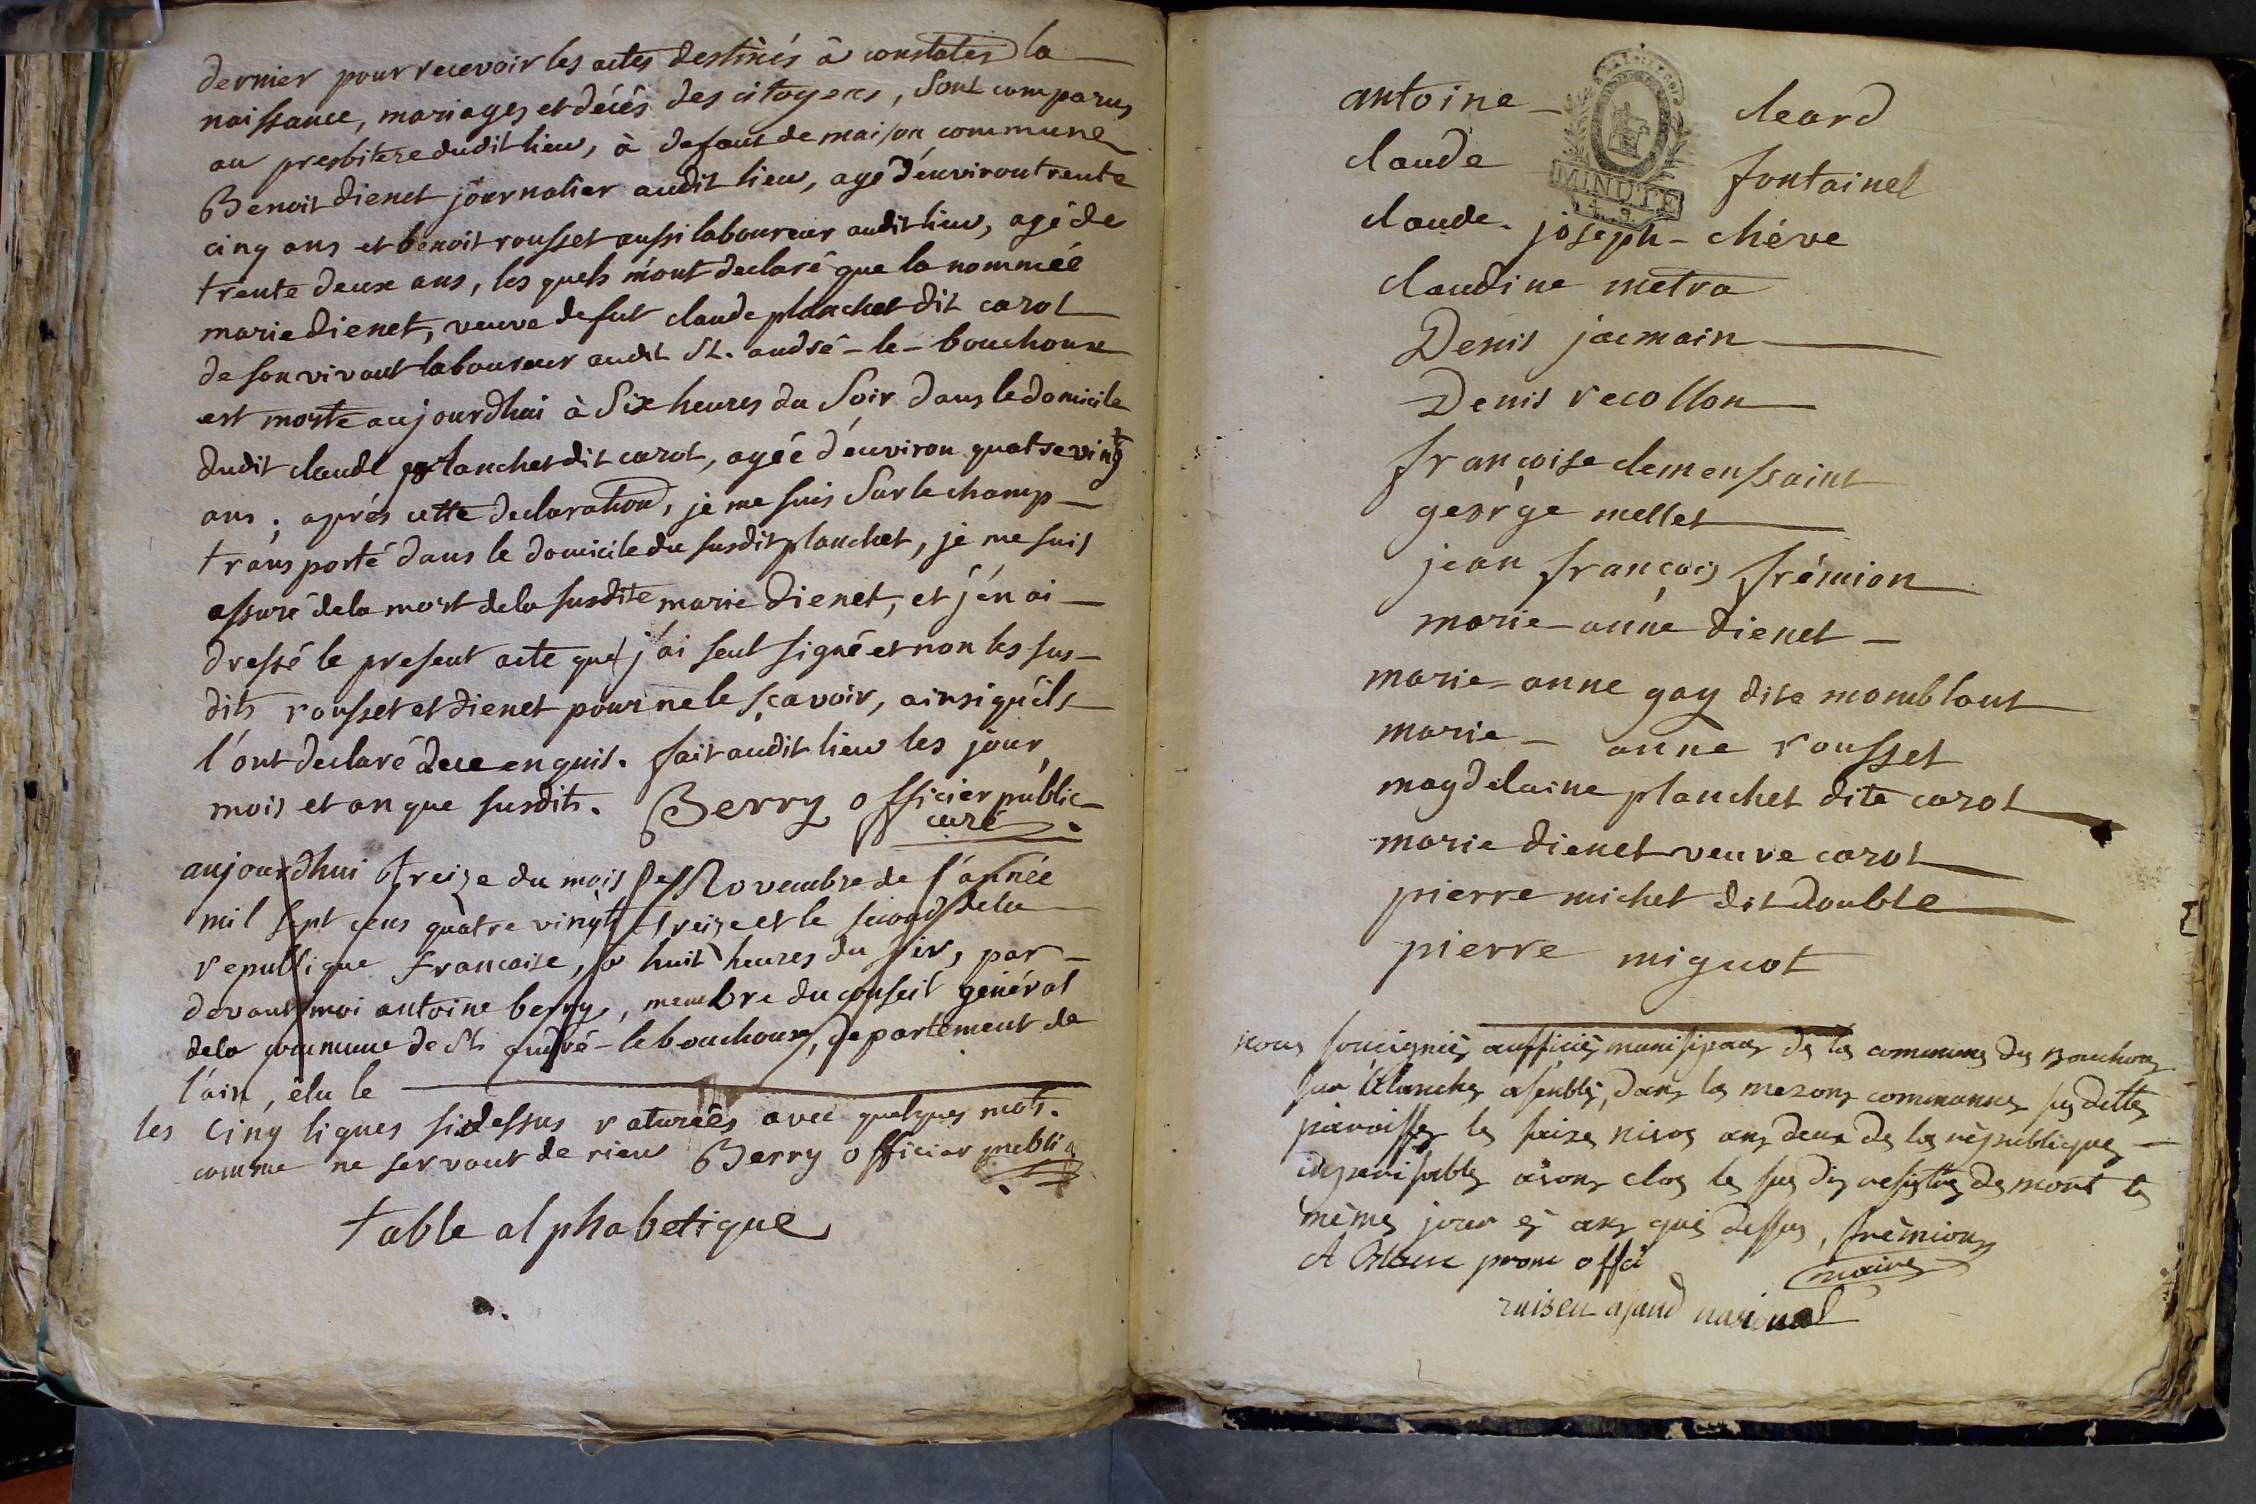 dernier pour recevoir les actes destinés à constater la
naissance, mariages et décés des citoyens, sont comparus
au presbitere dudit lieu, à defaut de maison commune
Benoit dienet journalier audit lieu, agé d'environ trente
cinq ans et benoit rousset aussi laboureur audit lieu, agé de
trente deux ans, les quels m'ont declaré que la nommée
marie dienet, veuve de fut claude planchet dit carot
de son vivant laboureur audit St. andré-le-bouchoux
est morte aujourdhui à Six heures du Soir dans le domicile
dudit claude planchet dit carot, agée d'environ quatre vingt
ans. aprés cette declaration, je me suis Sur le champ
transporté dans le domicile du susdit planchet, je me suis
assuré de la mort de la susdite marie dienet, et j'en ai
dressé le present acte que j'ai seul signé et non les sus-
dits rousset et dienet pour ne le sçavoir, ainsi qu'ils
l'ont declaré de ce enquis. fait audit lieu les jour,
mois et an que susdits. Berry officier public
curé
aujourdhui treize du mois de Novembre de l'année
mil sept cens quatre vingt treize et le second de la
republique francaise, à huit heures du soir, par-
devant moi antoine berry, membre du conseil général
de la commune de St andré-le bouchoux, departement de
l'ain, élu le
les cinq lignes sidessus raturées avec quelques mots.
comme ne servant de rien Berry officier public
table alphabetique
antoine cleard
MINUTE
claude fontainel
claude-joseph-chéve
claudine metra
Denis jacmain
Denis recollon
françoise clemenssaint
george mellet
jean françois frémion
marie-anne dienet
marie-anne gay dite momblant
marie-anne rousset
magdelaine planchet dite carot
marie dienet veuve carot
pierre michet dit double
pierre miguot
nous soucigniés aufficiés munisipaux de la commune du Bouchoux
sur asenblés, dans la mezons communes susdittes
paroisses le saize nivos ans deux de la republique
aivons clos le susdis resistre de mort le
mêmes jour es ans que dessus, frémion
maire
A offi
ajand nasional